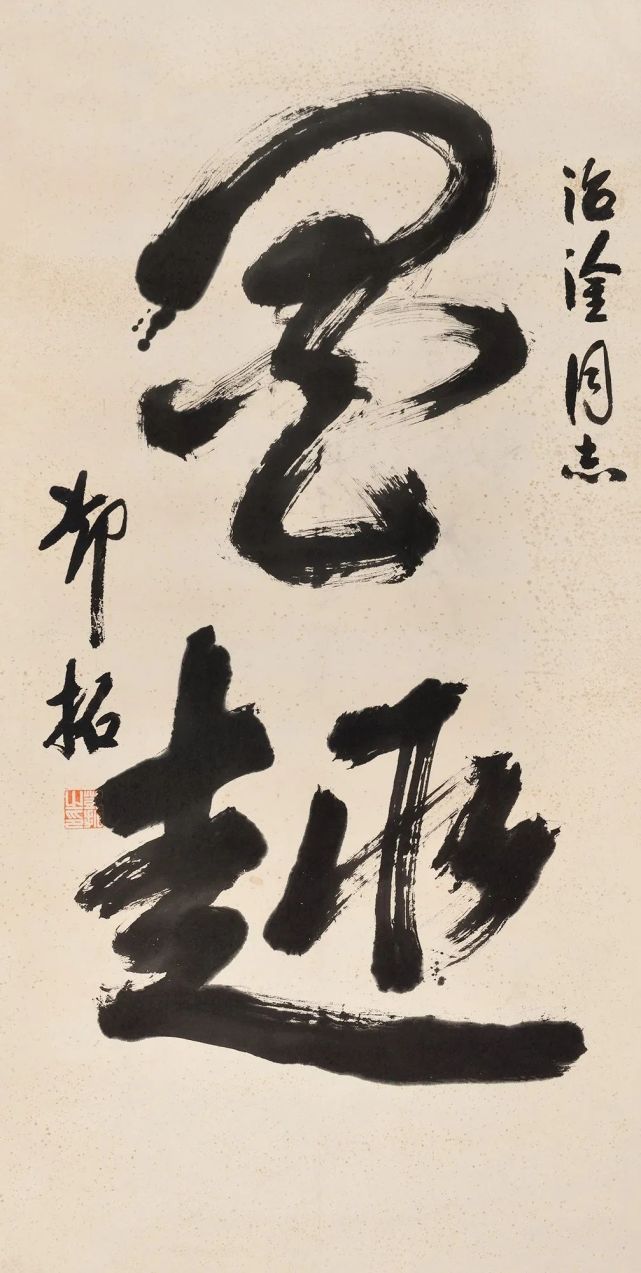 治淦同志
墨趣
拓